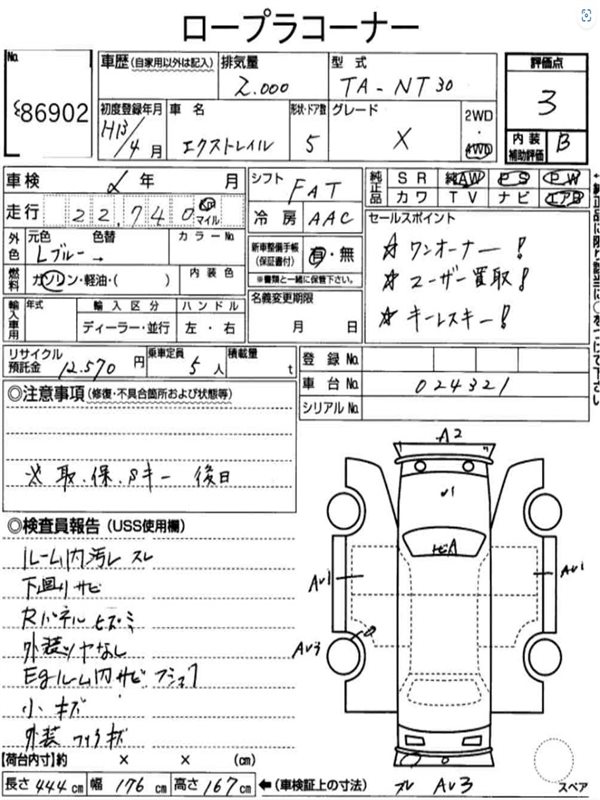 ロープラコーナー
No.
86902
車歴 (自家用以外は記入)
排気量
2.000
型式
TA-NT30
評価点
3
初度登録年月
H13/4月
車名
エクストレイル
形状・ドア数
5
グレード
X
2WD
・
4WD
内装
補助評価
B
車検 年 月
走行 22,740 Km マイル
シフト
FAT
冷房 AAC
純正品
SR 純AW PS PW
カワ TV ナビ エアB
外色
元色 色替
Lブルー →
カラーNo.
燃料
ガソリン・軽油・( )
内装色
新車整備手帳
(保証書付)
有・無
※書類と一緒に保管下さい。
セールスポイント
☆ ワンオーナー!
☆ ユーザー買取!
☆ キーレスキー!
輸入車用
年式
輸入区分
ディーラー・並行
ハンドル
左・右
名義変更期限
月 日
リサイクル
預託金 12.570 円
乗車定員 5人
積載量 t
登録No.
車台No. 024321
シリアルNo.
◎注意事項 (修復・不具合箇所および状態等)
※ 取.保.Sキー 後日
◎検査員報告 (USS使用欄)
ルーム内汚レ スレ
下回りサビ
Rパネル ヒズミ
外装ツヤなし
Egルーム内サビ
小キズ
A2
トビA
AU1
AU1
AU3
【荷台内寸】約 × × (cm)
長さ 444cm 幅 176cm 高さ 167cm ←(車検証上の寸法)
スレ AU3
スペア